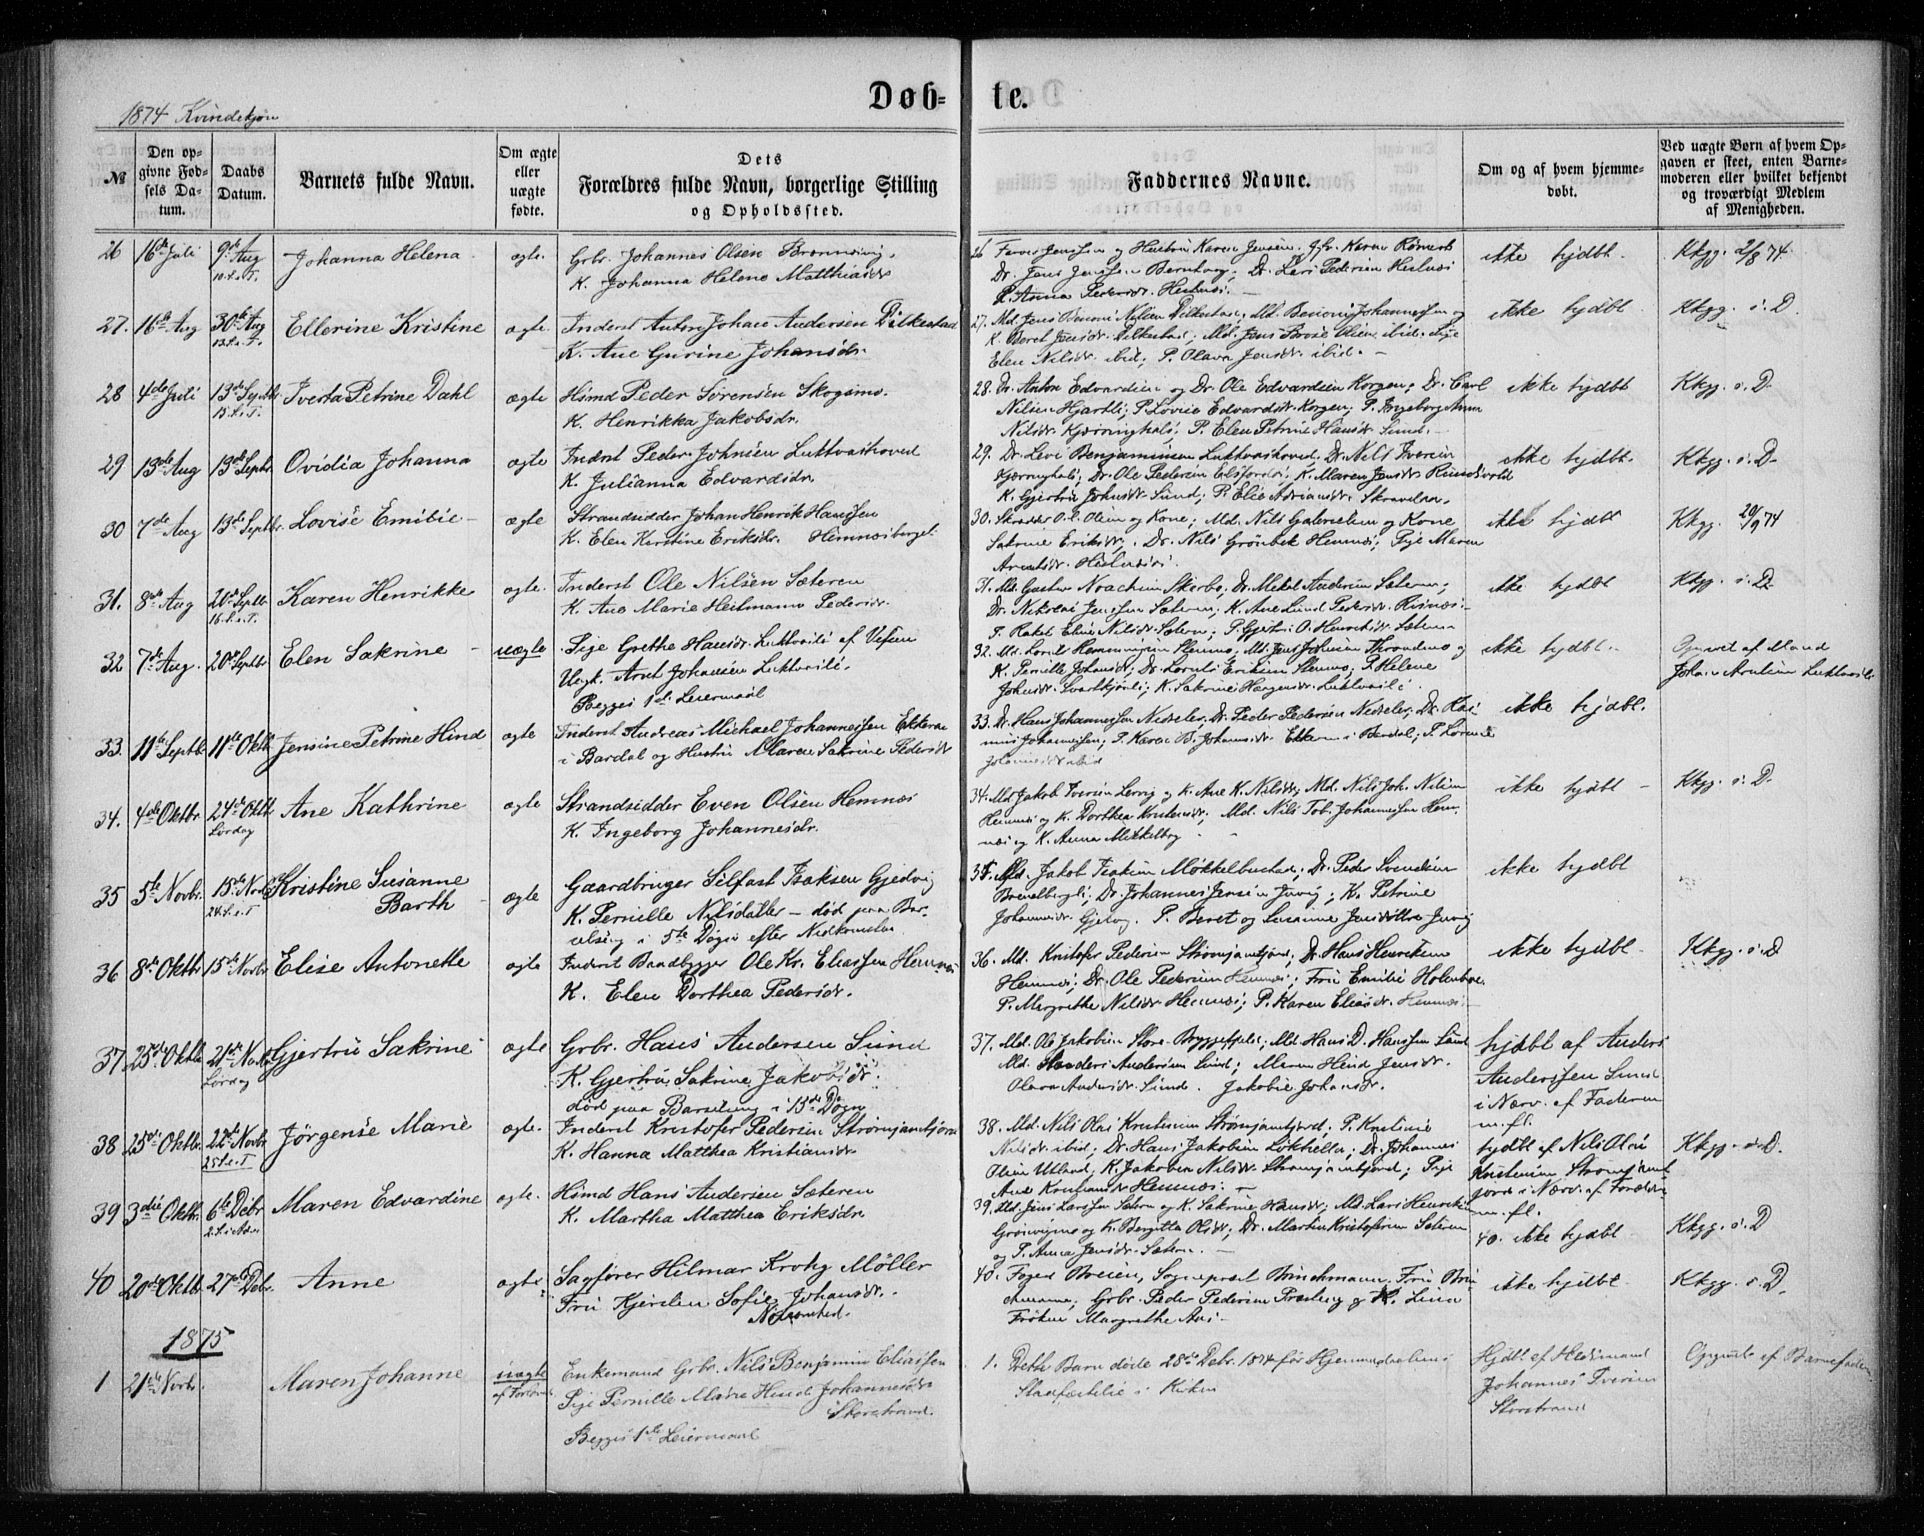 Døb-
te.
1874 Kvindekjøn
№
Den op-
givne Fød-
sels Da-
tum.
Daabs
Datum.
Barnets fulde Navn.
Om ægte
eller
uægte
fødte.
Dets
Forældres fulde Navn, borgerlige Stilling
og Opholdssted.
Faddernes Navne.
Om og af hvem hjemme-
døbt.
Ved uægte Børn af hvem Op-
gaven er skeet, enten Barne-
moderen eller hvilket bekjendt
og troværdigt Medlem
af Menigheden.
26 16de Juli 9de Aug Johanna Helena ægte. Grbr. Johannes Olsen
10. S. e. T.
K. Johanna Helene Matthiasdr
26 og Hustru Karen Jensen,
P. Anna Pedersdr.
ikke hjdbt. Kkgg. 2/8 74.
27. 16de Aug 30te Aug Ellerine Kristine ægte. Inderst Anton Johan Andersen Dilkestad
13. S. e. T.
K. Ane Gurine Johansdr.
27. Md. Jens Johannessen og
K. Beret Jensdr. Dilkestad; Md. Jens Olsen ibid. Pige
Elen Nilsdr ibid; P. Olava Jensdr ibid. —
ikke hjdbt. Kkgg. s. D.
28 4de Juli 13de Septbr Iverta Petrine Dahl ægte Hsmd Peder Sørensen Skogsmo.
15. S. e. T.
K. Henrikka Jakobsdr.
28. Dr. Anton Edvardsen og Dr. Ole Edvardsen Korgen; Dr. Carl
Nilsen Hjartli; P. Lovise Edvardsdr. Korgen; P. Ingeborg Anna
Nilsdr. Kjærringhals; P. Elen Petrine Hansdr Sund. —
ikke hjdbt Kkgg. s. D.
29 13de Aug 13de Septbr Ovidia Johanna ægte Inderst Peder Johnsen Luktvashoved
K. Julianna Edvardsdr.
29. Dr. Levi Benjaminsen Luktvashoved. Dr. Nils Iversen
Kjærringhals; Dr. Ole Pedersen Elsfjorden; K. Maren Jensdr
K. Gjertru Johnsdr. Sund; P. Elie Adriansdr.
ikke hjdbt. Kkgg. s. D.
30 7de Aug 13de Septbr. Lovise Emilie — ægte Strandsidder Johan Henrik Hansen
K. Elen Kirstine Eriksdr. Hemnesberget.
30. Skrædder O. L. Olsen og Kone; Md. Nils Gabrielsen og Kone
Sakrine Eriksdr,. Dr. Nils Grönbek Hemnes; Pige Maren
Arntsdr.
ikke hjdbt Kkgg. 20/9 74
31. 8de Aug 20de Septbr Karen Henrikke ægte. Inderst Ole Nilsen Sæteren
16. S. e. T.
K. Ane Marie Heitmann Pedersdr.
31. Md. Gustav Noachsen Skerbe; Dr. Mekal Andersen Sæteren;
Dr. Nikolai Jenssen Sæteren; K. Ane Lund Pedersdr. Risnæs. —
P. Rakel Eline Nilsdr. Sæteren; P. Gjertru O. Henriksdr. Sæteren
ikke hjdbt Kkgg. s. D.
32 7de Aug. 20de Septbr Elen Sakrine — uægte Pige Grethe Hansdr. Luktvasli af Vefsen
Ungk. Arnt Johansen Luktvasli.
Begges 1ste Leiermaal
32. Md. Lornts Hemmingsen Stenmo; Md. Jens Johnsen og
K. Pernille Johansdr; Dr. Lornts Eriksen Stenmo; P. Helene
Johnsdr. ; K. Sakrine Luktvasli.
ikke hjdbt. Opgivet af Mand
Johan Arntsen Luktvasli
33. 11te Septbr 11te Oktbr Jensine Petrine Hind ægte Inderst Andreas Michael Johannessen Ekteran
i Bardal og Hustru Maren Sakrine Pedersdr
33. Dr. Hans Johannessen Nedseler; Dr. Peder Pedersen Nedseler; Dr. Ras-
mus Johannessen; P. Karen B. Johannesdr. i Bardal; P. Lorense
Johannesdr ibid
ikke hjdbt.
34. 4de Oktbr. 24de Oktbr. Ane Kathrine ægte Strandsidder Even Olsen Hemnes
Lørdag
K. Ingeborg Johannesdr.
34. Md Jakob Iversen Lervig og K. Ane K. Nilsdr; Md. Nils Joh. Nilsen
Hemnes og K. Dorthea Kristensdr; Md. Nils Tob. Johannessen Hem-
nes og K. Anna Mikkelborg
ikke hjdbt — Kkgg. s. D.
35 5te Novbr. 15de Novbr. Kristine Susanne ægte Gaardbruger Silfast Isaksen Gjedvig
24. S. e. T
Barth —
K. Pernille Nilsdatter — død paa Bar-
selseng i 5te Døgn efter Nedkomsten
35. Md. Jakob Joakim Møkkelbustad; Dr. Peder Svendsen
Dr. Johannes Jensen; K. Petrine
Johannesdr. P. Beret og Susanne Jensdøttre
ikke hjdbt
36 8de Oktbr. 15de Novbr. Elise Antonette ægte Inderst Baadbygger Ole Kr. Eliassen Hemnes
K. Elen Dorthea Pedersdr.
36. Md. Kristofer Pedersen Strömsamfjord; Dr. Hans Henriksen
Hemnes; Dr. Ole Pedersen Hemnes; Fru Emilie
P. Margrethe Nilsdr. Hemnes; P. Karen Eliasdr. Hemnes. —
ikke hjdbt Kkgg. s. D
37 25de Oktbr. 21de Novbr Gjertru Sakrine ægte Grbr. Hans Andersen Sund
Lørdag
K. Gjertru Sakrine Jakobsdr.
død paa Barselseng i 13de Døgn
37. Md. Ole Jakobsen Store-Bryggefjeld; Md. Hans D. Hanssen Sund
Md. Anders Andersen Sund; Maren Hind Jensdr.
Olava Andersdr. Sund. Jakobie Johansdr.
hjdbt af Anders
Anderssen Sund
i Nærv. af Faderen
m. fl.
38 25de Oktbr. 22de Novbr Jørgense Marie ægte. Inderst Kristofer Pedersen Strømsamfjord
25 S. e. T
K. Hanna Matthea Kristiansdr.
38. Md. Nils Olai Kristensen Strømsamfjord; P. Kristine
Nilsdr. ibid; Dr. Hans Jakobsen; Dr. Johannes
Olsen Utland; K. Jakobea Nilsdr. Strømsamfjord; Pige
Ane Kristiansdr. Hemnes. —
hjdbt af Nils Olai
Kristensen Strømsam-
fjord i Nærv. af Forældre
m. fl.
Kkgg. s. D.
39 3die Oktbr. 6te Debr Maren Edvardine ægte. Hsmd Hans Andersen Sæteren
2. S. i Adv.
K. Martha Matthea Eriksdr.
39. Md. Jens Larssen Sæteren og K. Sakrine Hansdr; Md. Lars Henriksen
og K. Bergitta Olsdr; Dr. Martin Kristofersen Sæteren
og P. Anna Jensdr. Sæteren. —
40. ikke hjdbt Kkgg. s. D
40 20de Oktbr. 27de Debr. Anne ægte Sagfører Hilmar Krohg Møller
Fru Kjersten Sofie Johansdr.
40. Foged Breien, Sogneprest Brinchmann, Fru Brin-
chmann, Grbr. Peder Pedersen og K. Lina
Frøken Margrethe Aas. —
ikke hjdbt. Kkgg. s. D.
1875
1 21de Novbr. Maren Johanne uægte Enkemand Grbr. Nils Benjamin Eliassen
Pige Pernille Maria Hind Johannesdr
Storstrand.
Begges 1ste Leiermaal
1. Dette Barn døde 28de Debr. 1874 før Hjemmedaabens
Stadfæstelse i Kirken
Hjdbt. af Husmand
Johannes Iversen
Storstrand
Opgivet af Barnefaderen